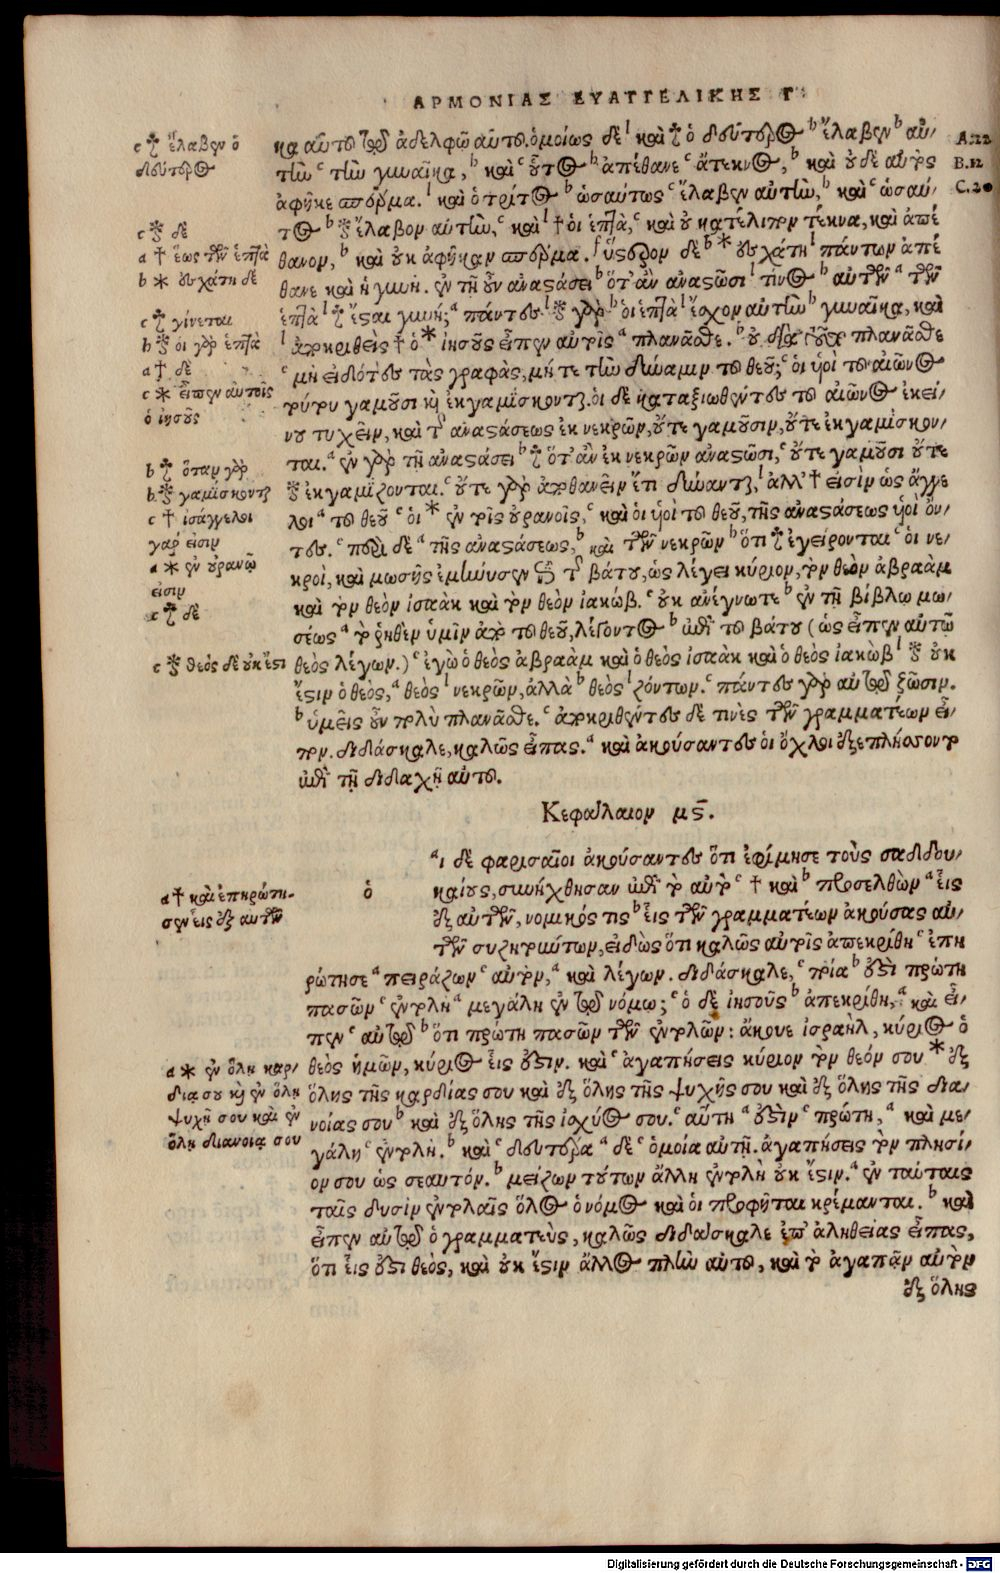 ΑΡΜΟΝΙΑΣ ΕΥΑΓΓΕΛΙΚΗΣ Γ
c ἔλαβεν ὁ
δεύτερος
c δὲ
a † ἕως τῶν ἑπτὰ
b * ἐσχάτη δὲ
c γίνεται
b οἱ γὰρ ἑπτὰ
a † δὲ
c * εἶπεν αὐτοῖς
ὁ ἰησοῦς
b ὅταν γὰρ
b γαμίσκονται
c † ἰσάγγελοι
γάρ εἰσιν
a * ἐν οὐρανῷ
εἰσιν
c δὲ
c θεὸς δὲ οὐκ ἔστι
A.22
B.12
C.20
κα αὐτοῦ τῷ ἀδελφῷ αὐτοῦ. ὁμοίως δὲ καὶ ὁ δεύτερος b ἔλαβεν b αὐ-
τὴν c τὴν γυναῖκα, b καὶ c οὗτος b ἀπέθανε c ἄτεκνος, b καὶ οὐδὲ αὐτὸς
ἀφῆκε σπέρμα. καὶ ὁ τρίτος b ὡσαύτως c ἔλαβεν αὐτὴν, b καὶ c ὡσαύ-
τως b ἔλαβον αὐτὴν, c καὶ † οἱ ἑπτὰ, c καὶ οὐ κατέλιπον τέκνα, καὶ ἀπέ
θανον, b καὶ οὐκ ἀφῆκαν σπέρμα. ὕστερον δὲ b * ἐσχάτη πάντων ἀπέ
θανε καὶ ἡ γυνή. ἐν τῇ οὖν ἀναστάσει b ὅτ' ἂν ἀναστῶσι τίνος b αὐτῶν a τῶν
ἑπτὰ ἔσται γυνή; a πάντες γὰρ b οἱ ἑπτὰ ἔσχον αὐτὴν b γυναῖκα, καὶ
ἀποκριθεὶς † ὁ * ἰησοῦς εἶπεν αὐτοῖς a πλανᾶσθε. b οὐ διὰ τοῦτο πλανᾶσθε
c μὴ εἰδότες τὰς γραφὰς, μήτε τὴν δύναμιν τοῦ θεοῦ; c οἱ υἱοὶ τοῦ αἰῶνος
τούτου γαμοῦσι καὶ ἐκγαμίσκονται. οἱ δὲ καταξιωθέντες τοῦ αἰῶνος ἐκεί-
νου τυχεῖν, καὶ τῆς ἀναστάσεως ἐκ νεκρῶν, οὔτε γαμοῦσιν, οὔτε ἐκγαμίσκον-
ται. a ἐν γὰρ τῇ ἀναστάσει b ὅτ' ἂν ἐκ νεκρῶν ἀναστῶσι, c οὔτε γαμοῦσι οὔτε
ἐκγαμίζονται. c οὔτε γὰρ ἀποθανεῖν ἔτι δύνανται, ἀλλ' † εἰσὶν ὡς ἄγγε
λοι a τοῦ θεοῦ c οἱ * ἐν τοῖς οὐρανοῖς, c καὶ οἱ υἱοὶ τοῦ θεοῦ, τῆς ἀναστάσεως υἱοὶ ὄν-
τες. c περὶ δὲ a τῆς ἀναστάσεως, b καὶ τῶν νεκρῶν b ὅτι ἐγείρονται c οἱ νε-
κροὶ, καὶ μωσῆς ἐμήνυσεν ἐπὶ τῆς βάτου, ὡς λέγει κύριον, τὸν θεὸν ἀβραὰμ
καὶ τὸν θεὸν ἰσαὰκ καὶ τὸν θεὸν ἰακώβ. c οὐκ ἀνέγνωτε b ἐν τῇ βίβλῳ μω-
σέως a τὸ ῥηθὲν ὑμῖν ἀπὸ τοῦ θεοῦ, λέγοντος b ἐπὶ τοῦ βάτου (ὡς εἶπεν αὐτῷ
θεὸς λέγων.) c ἐγὼ ὁ θεὸς ἀβραὰμ καὶ ὁ θεὸς ἰσαὰκ καὶ ὁ θεὸς ἰακώβ οὐκ
ἔστιν ὁ θεὸς, a θεὸς νεκρῶν, ἀλλὰ b θεὸς ζώντων. c πάντες γὰρ αὐτῷ ζῶσιν.
b ὑμεῖς οὖν πολὺ πλανᾶσθε. c ἀποκριθέντες δὲ τινὲς τῶν γραμματέων εἶ-
πον. διδάσκαλε, καλῶς εἶπας. a καὶ ἀκούσαντες οἱ ὄχλοι ἐξεπλήσσοντο
ἐπὶ τῇ διδαχῇ αὐτοῦ.
Κεφάλαιον μϛ.
a † καὶ ἐπηρώτη-
σεν εἷς ἐξ αὐτῶν
a * ἐν ὅλῃ καρ-
δίᾳ σου καὶ ἐν ὅλῃ
ψυχῇ σου καὶ ἐν
ὅλῃ διανοίᾳ σου
ὁ
a ι δὲ φαρισαῖοι ἀκούσαντες ὅτι ἐφίμησε τοὺς σαδδου-
καίους, συνήχθησαν ἐπὶ τὸ αὐτὸ c † καὶ b προσελθὼν a εἷς
ἐξ αὐτῶν, νομικός τις b εἷς τῶν γραμματέων ἀκούσας αὐ-
τῶν συζητούντων, εἰδὼς ὅτι καλῶς αὐτοῖς ἀπεκρίθη c ἐπη
ρώτησε a πειράζων c αὐτὸν, a καὶ λέγων. διδάσκαλε, c ποία b ἐστὶ πρώτη
πασῶν c ἐντολὴ a μεγάλη ἐν τῷ νόμῳ; c ὁ δὲ ἰησοῦς b ἀπεκρίθη, a καὶ εἶ-
πεν c αὐτῷ b ὅτι πρώτη πασῶν τῶν ἐντολῶν: ἄκουε ἰσραὴλ, κύριος ὁ
θεὸς ἡμῶν, κύριος εἷς ἐστιν. καὶ c ἀγαπήσεις κύριον τὸν θεόν σου * ἐξ
ὅλης τῆς καρδίας σου καὶ ἐξ ὅλης τῆς ψυχῆς σου καὶ ἐξ ὅλης τῆς δια-
νοίας σου b καὶ ἐξ ὅλης τῆς ἰσχύος σου. c αὕτη a ἐστὶν c πρώτη, a καὶ με-
γάλη c ἐντολή. b καὶ c δευτέρα a δὲ c ὁμοία αὐτῇ. ἀγαπήσεις τὸν πλησί-
ον σου ὡς σεαυτόν. b μείζων τούτων ἄλλη ἐντολὴ οὐκ ἔστιν. a ἐν ταύταις
ταῖς δυσὶν ἐντολαῖς ὅλος ὁ νόμος καὶ οἱ προφῆται κρέμανται. b καὶ
εἶπεν αὐτῷ ὁ γραμματεὺς, καλῶς διδάσκαλε ἐπ' ἀληθείας εἶπας,
ὅτι εἷς ἐστι θεὸς, καὶ οὐκ ἔστιν ἄλλος πλὴν αὐτοῦ, καὶ τὸ ἀγαπᾷν αὐτὸν
ἐξ ὅλης
Digitalisierung gefördert durch die Deutsche Forschungsgemeinschaft - DFG